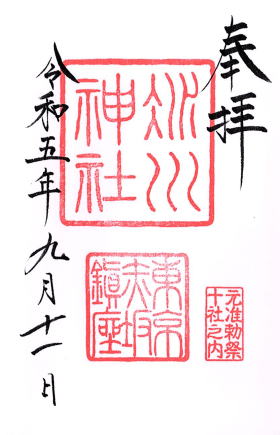 奉拝
氷川
神社
東京
赤坂
鎮座
元准勅祭
十社之内
令和五年九月十一日